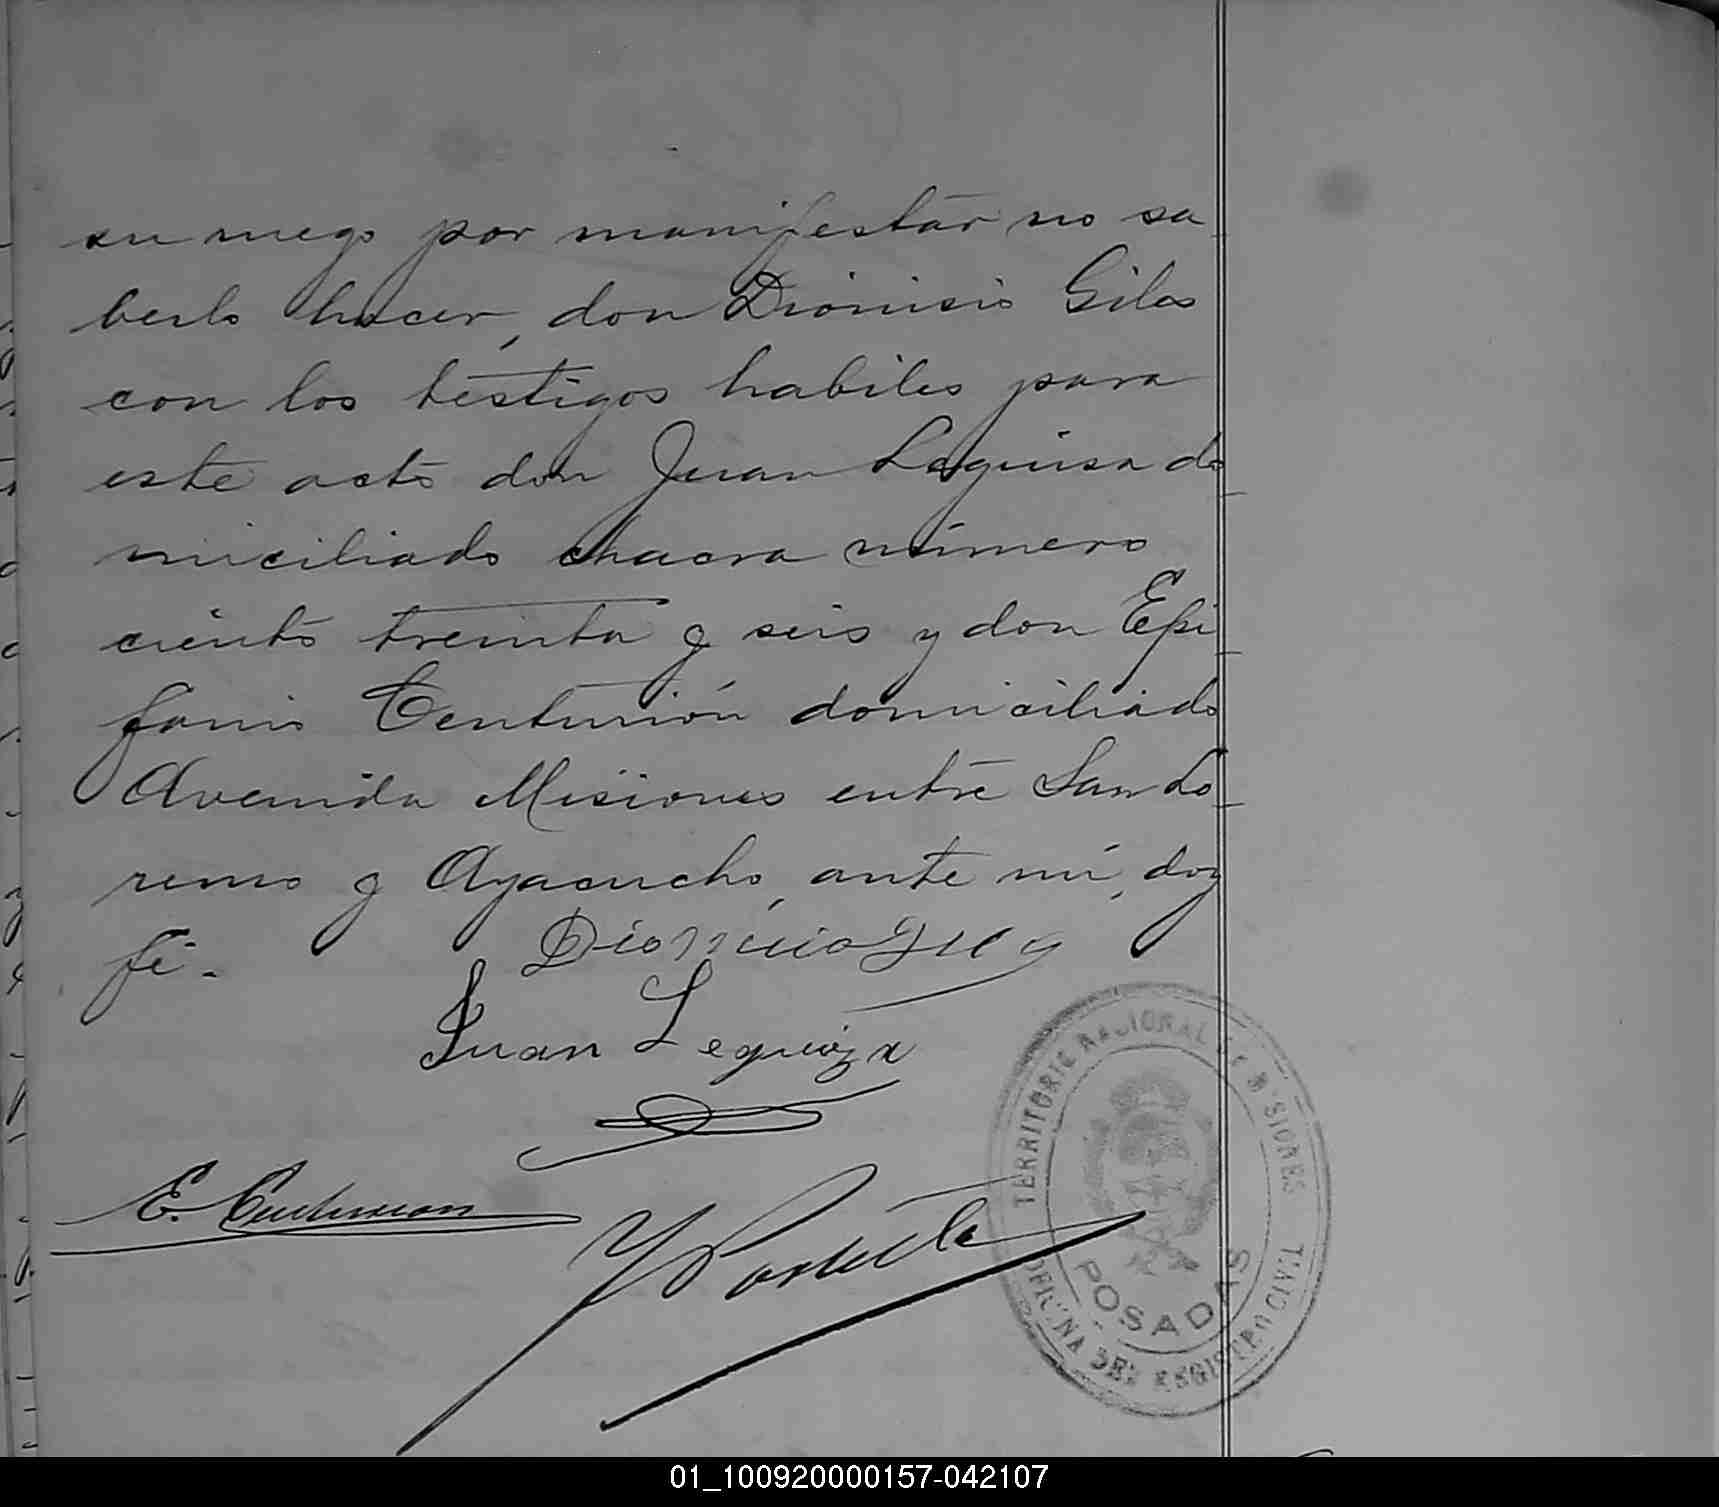 su ruego por manifestar no sa-
berlo hacer, don Dionisio Giles
con los testigos habiles para
este acto don Juan Leguisa do-
miciliado chacra número
ciento treinta y seis y don Epi-
fanio Centurión domiciliado
Avenida Misiones entre San Lo-
renso y Ayacucho, ante mí, doy
fé.
Dionicio
Juan Leguiza
E. Centurion
TERRITORIO NACIONAL DE MISIONES
POSADAS
OFICINA DEL REGISTRO CIVIL
01_100920000157-042107